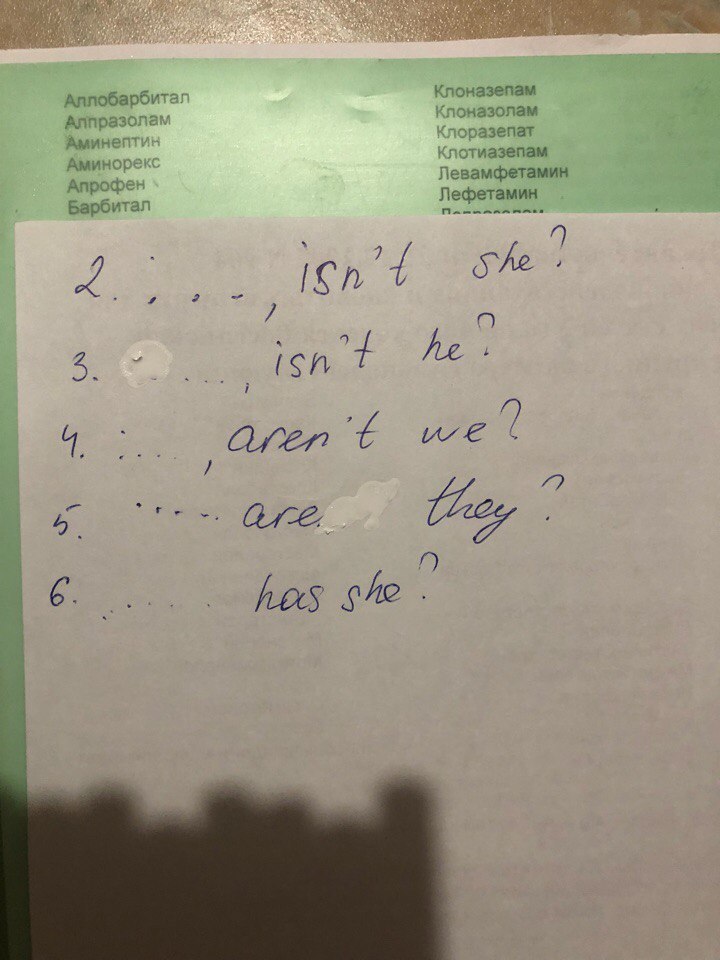 Аллобарбитал
Алпразолам
Аминептин
Аминорекс
Апрофен
Барбитал
Клоназепам
Клоназолам
Клоразепат
Клотиазепам
Левамфетамин
Лефетамин
2. ...., isn't she?
3. ...., isn't he?
4. ...., aren't we?
5. ..... are they?
6. ..... has she?